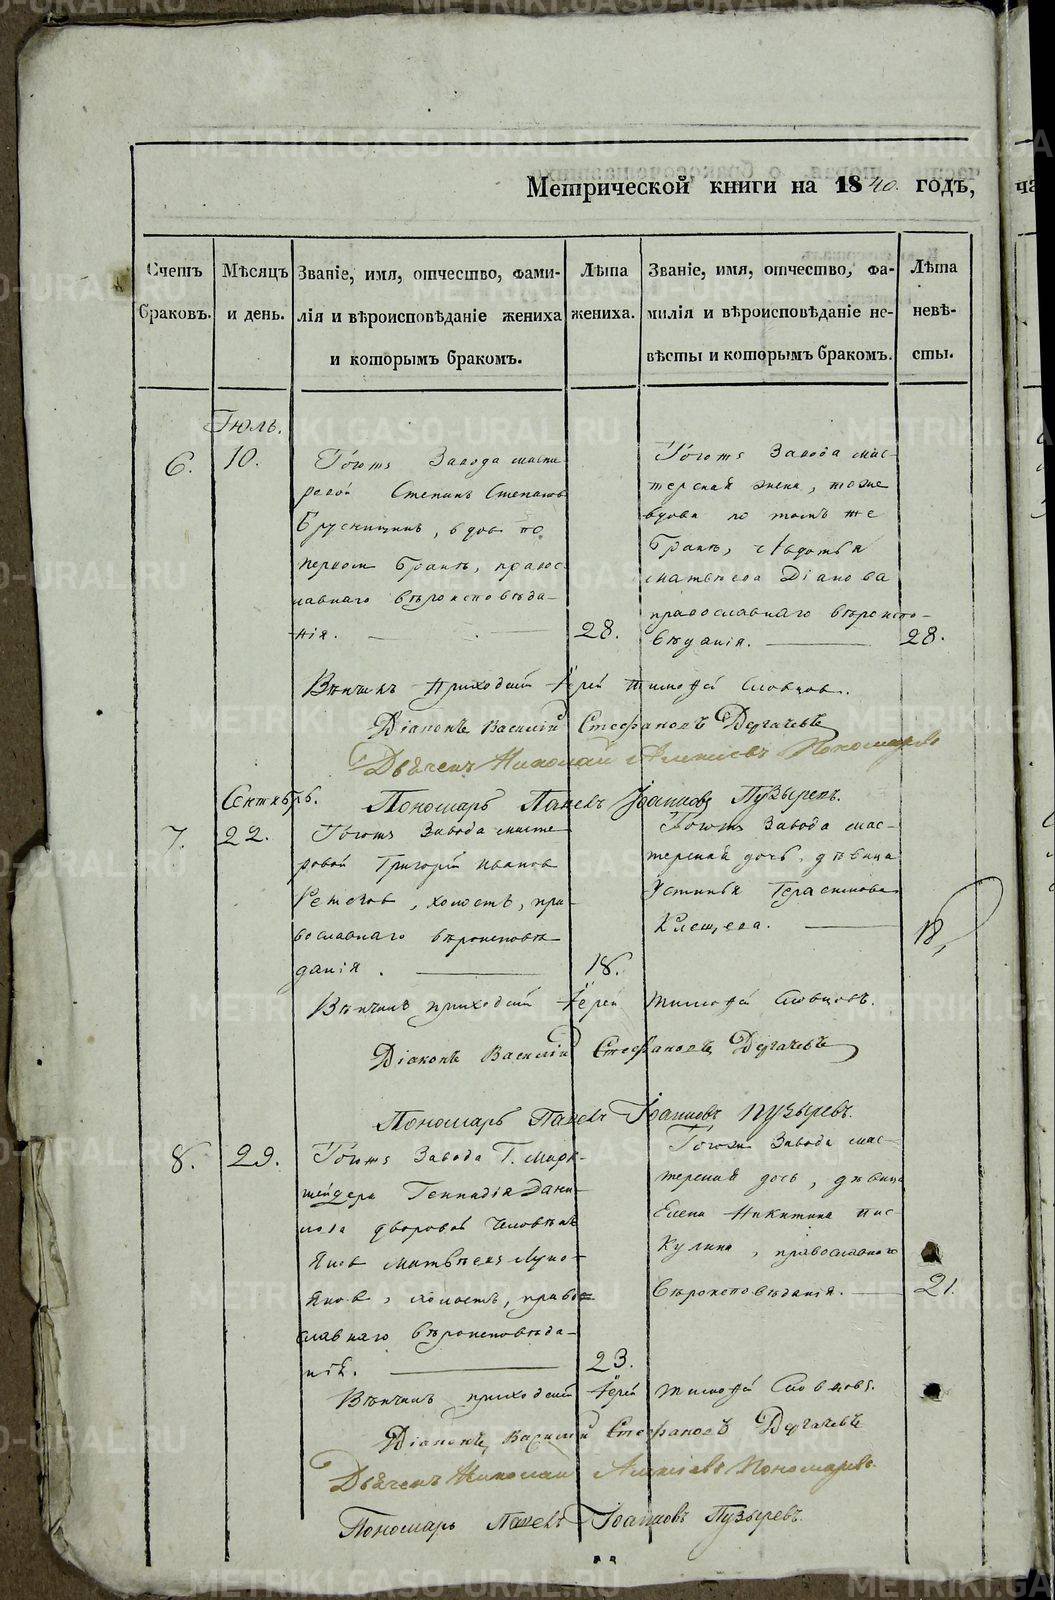 Метрической книги на 1840. годъ,
Счетъ браковъ.
Мѣсяцъ и день.
Званіе, имя, отчество, фами-
лія и вѣроисповѣданіе жениха
и которымъ бракомъ.
Лѣта
жениха.
Званіе, имя, отчество, фа-
милія и вѣроисповѣданіе не-
вѣсты и которымъ бракомъ.
Лѣта
невѣ-
сты.
Іюль.
6.
10.
Завода масте
ровой Степанъ Степановъ
Брусницынъ, вдовъ по
первомъ бракѣ, правос
лавнаго вѣроисповѣда-
нія.
28.
Завода мас-
терская жена, тоже
вдова по томъ же
бракѣ, Авдотья
Матвѣева Діанова
православнаго вѣроиспо-
вѣданія.
28.
Вѣнчалъ приходскій Іерей Тимофей Словцовъ.
Діаконъ Василій Стефановъ Дергачевъ
Дьячекъ Николай Алексіевъ Пономаревъ
Пономарь Павелъ Іоанновъ Пузыревъ.
Сентябрь.
7.
22.
Завода масте
ровой Григорій Ивановъ
холостъ, пра-
вославнаго вѣроисповѣ
данія.
18.
Завода мас-
терская дочь, дѣвица
Устинья Герасимова
Клещева.
18,
Вѣнчалъ приходскій Іерей Тимофей Словцовъ.
Діаконъ Василій Стефановъ Дергачевъ
Пономарь Павелъ Іоанновъ Пузыревъ.
8.
29.
Завода Г. Марк-
шейдера Геннадія Дани-
лова дворовой человѣкъ
Яковъ Матвѣевъ Луко-
яновъ, холостъ, право
славнаго вѣроисповѣда-
нія.
23.
Завода мас-
терская дочь, дѣвица
Елена Никитина Пис-
кулина, православнаго
вѣроисповѣданія.
21.
Вѣнчалъ приходскій Іерей Тимофей Словцовъ.
Діаконъ Василій Стефановъ Дергачевъ
Дьячекъ Николай Алексіевъ Пономаревъ.
Пономарь Павелъ Іоанновъ Пузыревъ.
METRIKI.GASO-URAL.RU